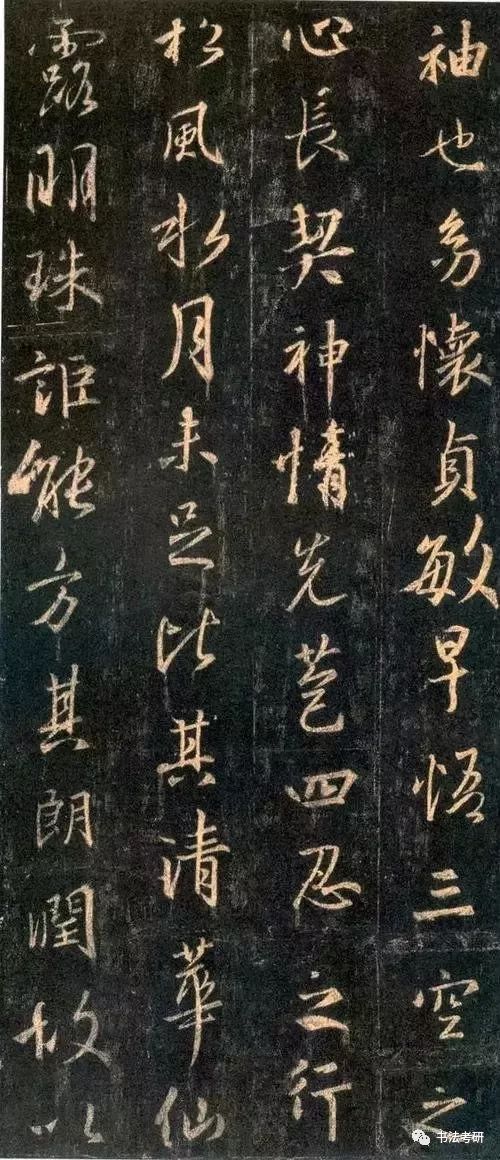 袖也幼懷貞敏早悟三空之
心長契神情先苞四忍之行
松風水月未足比其清華仙
露明珠詎能方其朗潤故以
书法考研